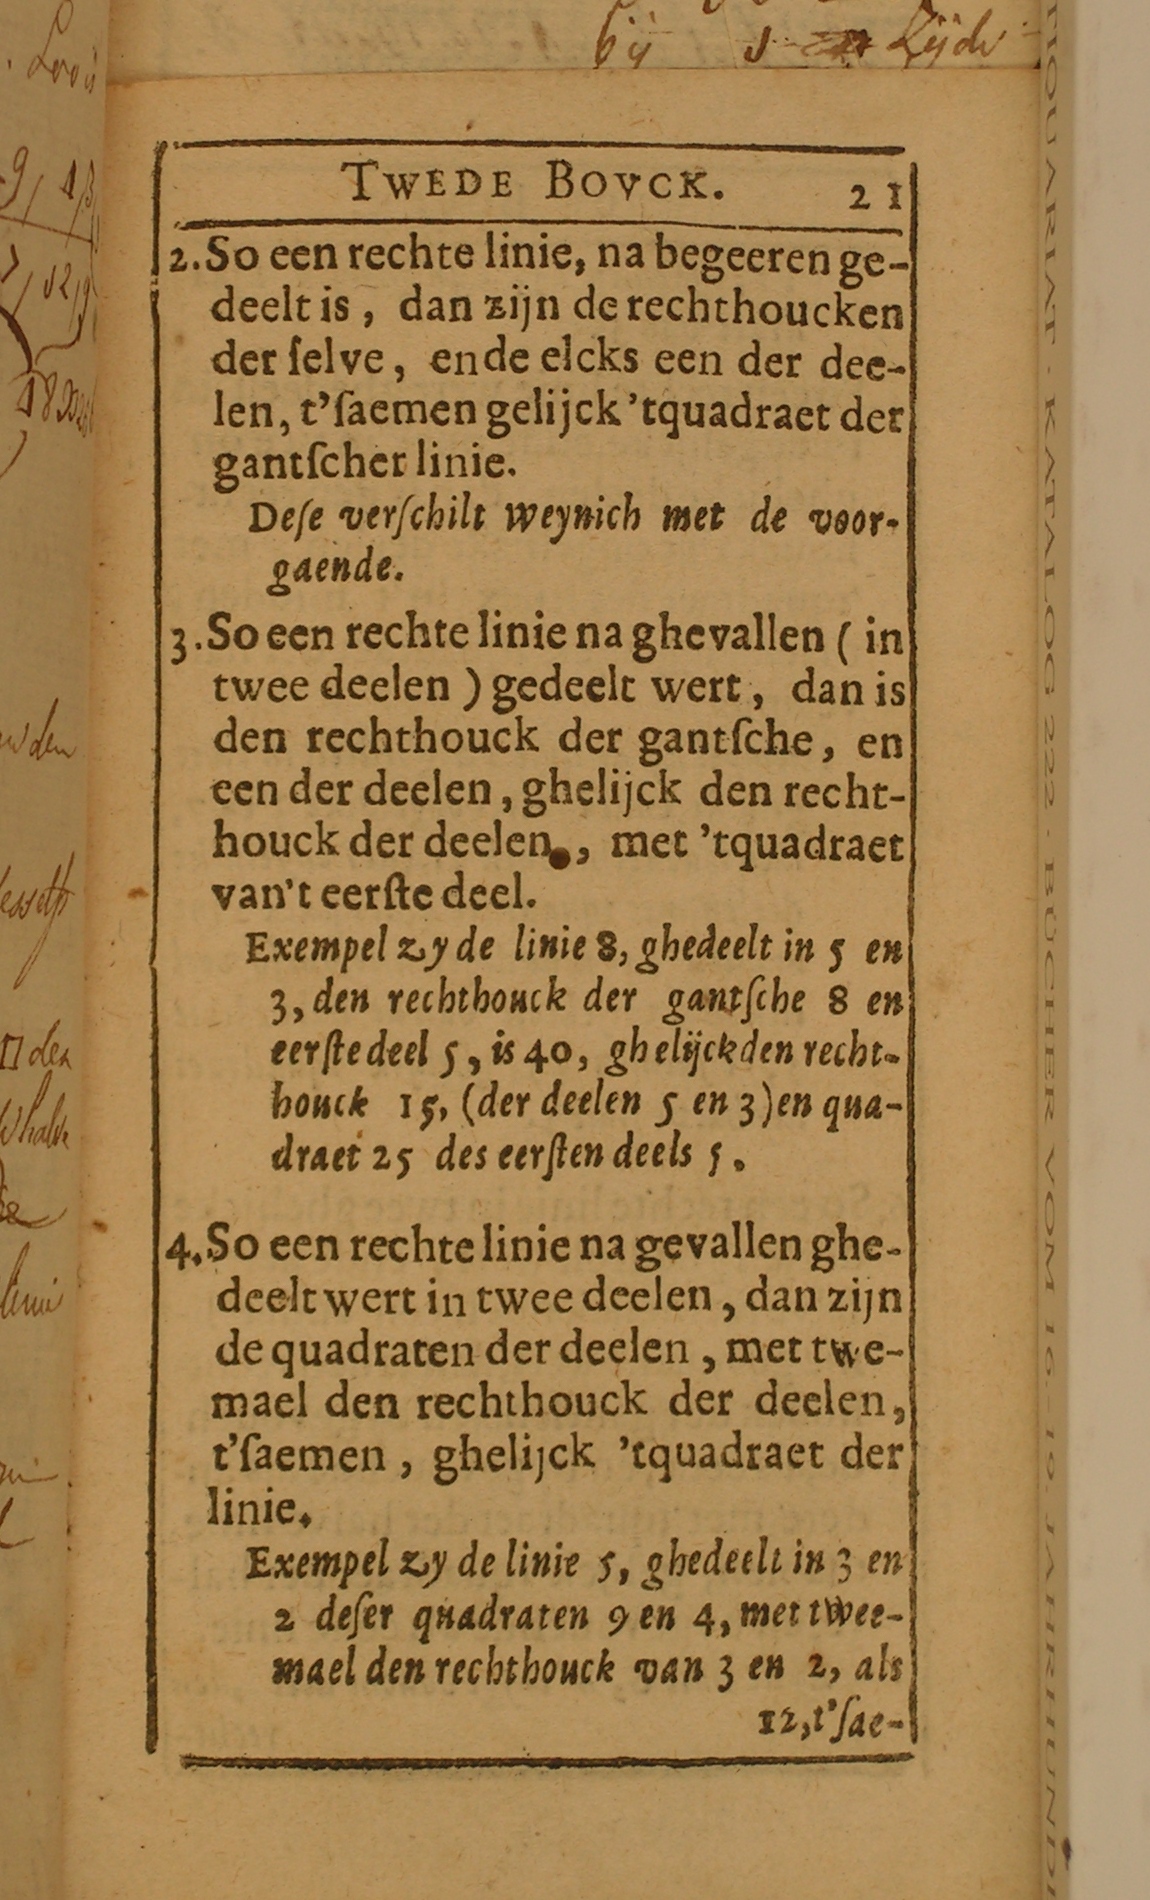 bij Zijde
TWEDE BOVCK. 21
2. So een rechte linie, na begeeren ge-
deelt is, dan zijn de rechthoucken
der ſelve, ende elcks een der dee-
len, t'ſaemen gelijck 'tquadraet der
gantſcher linie.
Deſe verſchilt weynich met de voor-
gaende.
3. So een rechte linie na ghevallen (in
twee deelen) gedeelt wert, dan is
den rechthouck der gantſche, en
een der deelen, ghelijck den recht-
houck der deelen, met 'tquadraet
van't eerſte deel.
Exempel zy de linie 8, ghedeelt in 5 en
3, den rechthouck der gantſche 8 en
eerſte deel 5, is 40, ghelijck den recht-
houck 15, (der deelen 5 en 3) en qua-
draet 25 des eerſten deels 5.
4. So een rechte linie na gevallen ghe-
deelt wert in twee deelen, dan zijn
de quadraten der deelen, met twe-
mael den rechthouck der deelen,
t'ſaemen, ghelijck 'tquadraet der
linie.
Exempel zy de linie 5, ghedeelt in 3 en
2 deſer quadraten 9 en 4, met twee-
mael den rechthouck van 3 en 2, als
12, t'ſae-
KATALOG 222. BÜCHER VOM 16.-19.